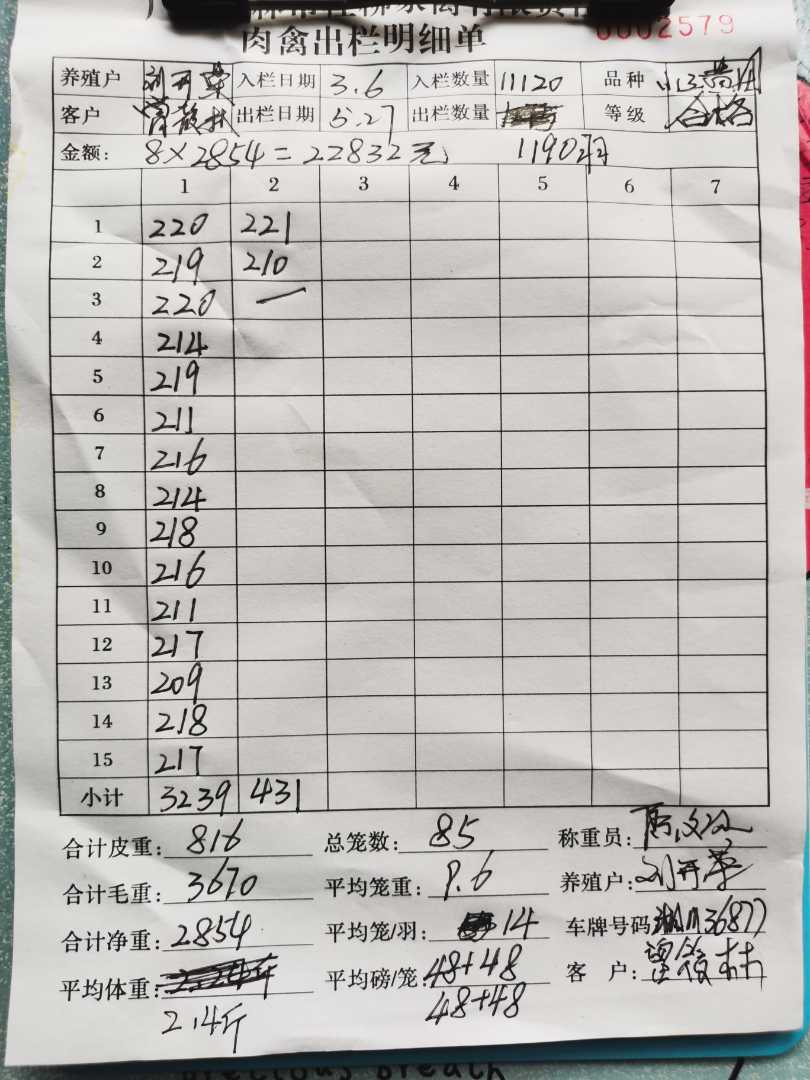 肉禽出栏明细单
0002579
养殖户 刘开荣 入栏日期 3.6 入栏数量 11120 品种
客户 出栏日期 5.27 出栏数量 等级 合格
金额: 8×2854=22832元 1190羽
1 2 3 4 5 6 7
1 220 221
2 219 210
3 220 一
4 214
5 219
6 211
7 216
8 214
9 218
10 216
11 211
12 217
13 209
14 218
15 217
小计 3239 431
合计皮重: 816 总笼数: 85 称重员:
合计毛重: 3670 平均笼重: 9.6 养殖户: 刘开荣
合计净重: 2854 平均笼/羽: 14 车牌号码
平均体重: 平均磅/笼: 48+48 客 户:
2.4斤 48+48
precious breath